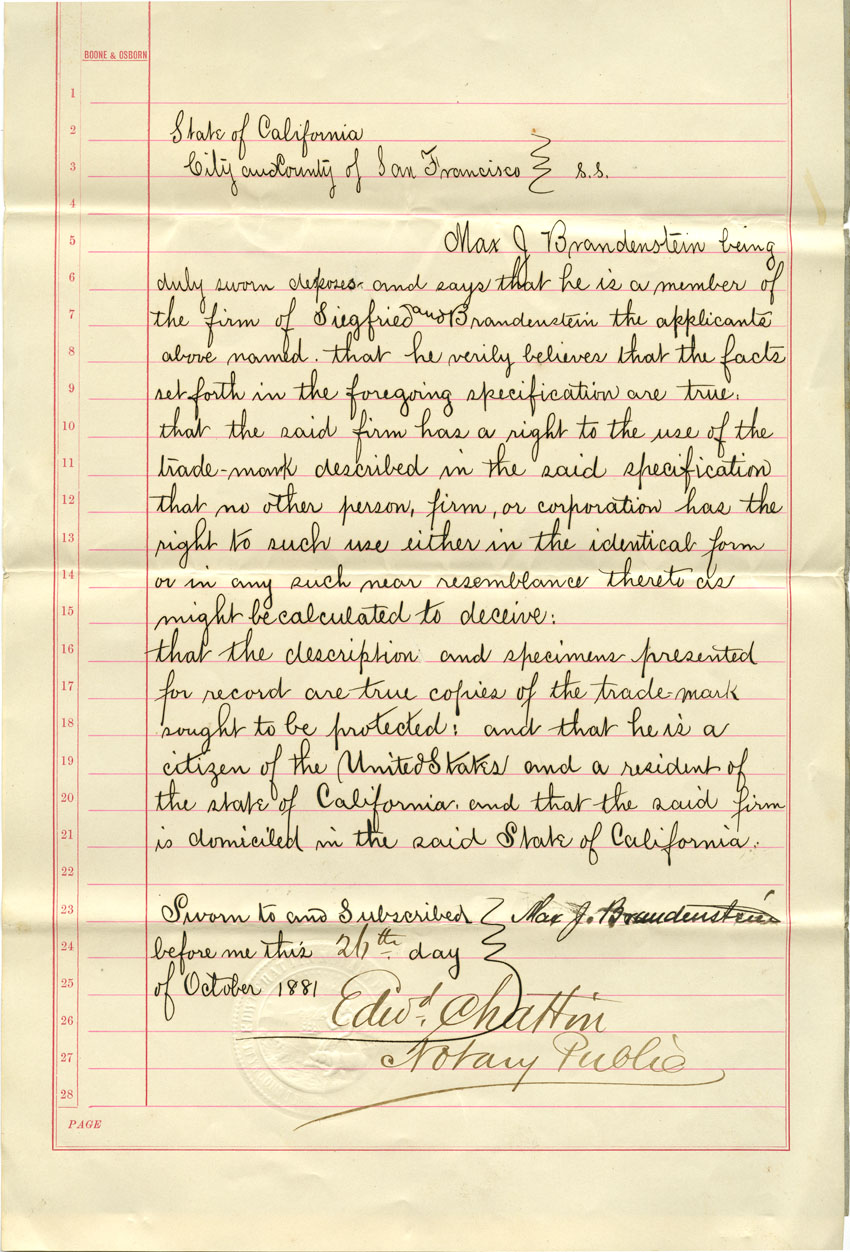 BOONE & OSBORN
1
2 State of California
3 City and County of San Francisco } s.s.
4
5 Max J Brandenstein being
6 duly sworn deposes and says that he is a member of
7 the firm of Siegfried and Brandenstein the applicants
8 above named. that he verily believes that the facts
9 set forth in the foregoing specification are true.
10 that the said firm has a right to the use of the
11 trade-mark described in the said specification
12 that no other person, firm, or corporation has the
13 right to such use either in the identical form
14 or in any such near resemblance thereto as
15 might be calculated to deceive:
16 that the description and specimens presented
17 for record are true copies of the trade-mark
18 sought to be protected; and that he is a
19 citizen of the United States and a resident of
20 the state of California. and that the said firm
21 is domiciled in the said State of California.
22
23 Sworn to and Subscribed } Max J. Brandenstein
24 before me this 26th day
25 of October 1881
26 Edwd. Chattin
27 Notary Public
28
PAGE